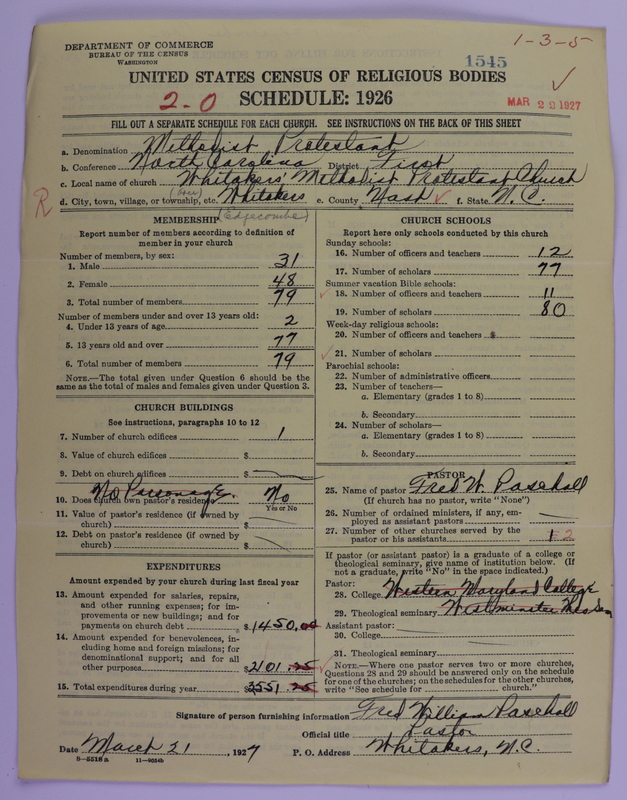 DEPARTMENT OF COMMERCE
BUREAU OF THE CENSUS
WASHINGTON
1-3-5
1545
UNITED STATES CENSUS OF RELIGIOUS BODIES
2-0 SCHEDULE: 1926
MAR 22 1927
FILL OUT A SEPARATE SCHEDULE FOR EACH CHURCH. SEE INSTRUCTIONS ON THE BACK OF THIS SHEET
a. Denomination Methodist Protestant
b. Conference North Carolina District First
c. Local name of church Whitakers' Methodist Protestant Church
R d. City, town, village, or township, etc. Whitakers e. County Nash f. State N. C.
(Edgecombe)
MEMBERSHIP
Report number of members according to definition of
member in your church
Number of members, by sex:
1. Male 31
2. Female 48
3. Total number of members 79
Number of members under and over 13 years old:
4. Under 13 years of age 2
5. 13 years old and over 77
6. Total number of members 79
NOTE.—The total given under Question 6 should be the
same as the total of males and females given under Question 3.
CHURCH BUILDINGS
See instructions, paragraphs 10 to 12
7. Number of church edifices 1
8. Value of church edifices $
9. Debt on church edifices $
No Parsonage.
10. Does church own pastor's residence? No
Yes or No
11. Value of pastor's residence (if owned by
church) $
12. Debt on pastor's residence (if owned by
church) $
EXPENDITURES
Amount expended by your church during last fiscal year
13. Amount expended for salaries, repairs,
and other running expenses; for im-
provements or new buildings; and for
payments on church debt $1450.00
14. Amount expended for benevolences, in-
cluding home and foreign missions; for
denominational support; and for all
other purposes $2101.25
15. Total expenditures during year $3551.25
CHURCH SCHOOLS
Report here only schools conducted by this church
Sunday schools:
16. Number of officers and teachers 12
17. Number of scholars 77
Summer vacation Bible schools:
18. Number of officers and teachers 11
19. Number of scholars 80
Week-day religious schools:
20. Number of officers and teachers
21. Number of scholars
Parochial schools:
22. Number of administrative officers
23. Number of teachers—
a. Elementary (grades 1 to 8)
b. Secondary
24. Number of scholars—
a. Elementary (grades 1 to 8)
b. Secondary
PASTOR
25. Name of pastor Fred W. Paschall
(If church has no pastor, write "None")
26. Number of ordained ministers, if any, em-
ployed as assistant pastors
27. Number of other churches served by the
pastor or his assistants 1 2
If pastor (or assistant pastor) is a graduate of a college or
theological seminary, give name of institution below. (If
not a graduate, write "No" in the space indicated.)
Pastor:
28. College Western Maryland College
29. Theological seminary Westminster Theo Sem
Assistant pastor:
30. College
31. Theological seminary
NOTE.—Where one pastor serves two or more churches,
Questions 28 and 29 should be answered only on the schedule
for one of the churches; on the schedules for the other churches,
write "See schedule for church."
Signature of person furnishing information Fred William Paschall
Official title Pastor
Date March 21, 1927 P. O. Address Whitakers, N.C.
8—5518a 11—9054b